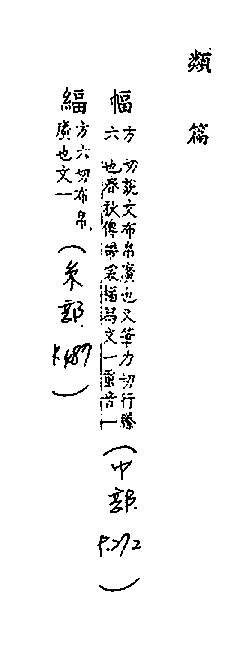 類篇
幅 方六切說文布帛廣也又筆力切行縢
也春秋傳帶裳幅舄文一重音一 (巾部 P.272)
方六切布帛
廣也文一 (糸部 P.487)